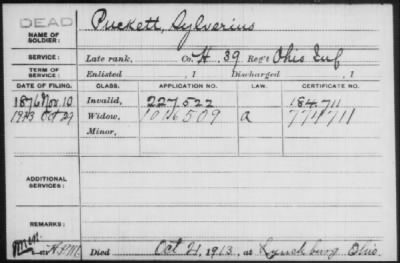 DEAD
NAME OF SOLDIER: Puckett, Sylverius
SERVICE: Late rank, Co. H, 39 Reg't Ohio Inf
TERM OF SERVICE: Enlisted , 1 Discharged , 1
DATE OF FILING. CLASS. APPLICATION NO. LAW. CERTIFICATE NO.
1876 Nov. 10 Invalid, 227.522 184.711
1913 Oct 29 Widow, 1016509 a 774711
Minor,
ADDITIONAL SERVICES:
REMARKS:
Died Oct 21, 1913, at Lynchburg Ohio.